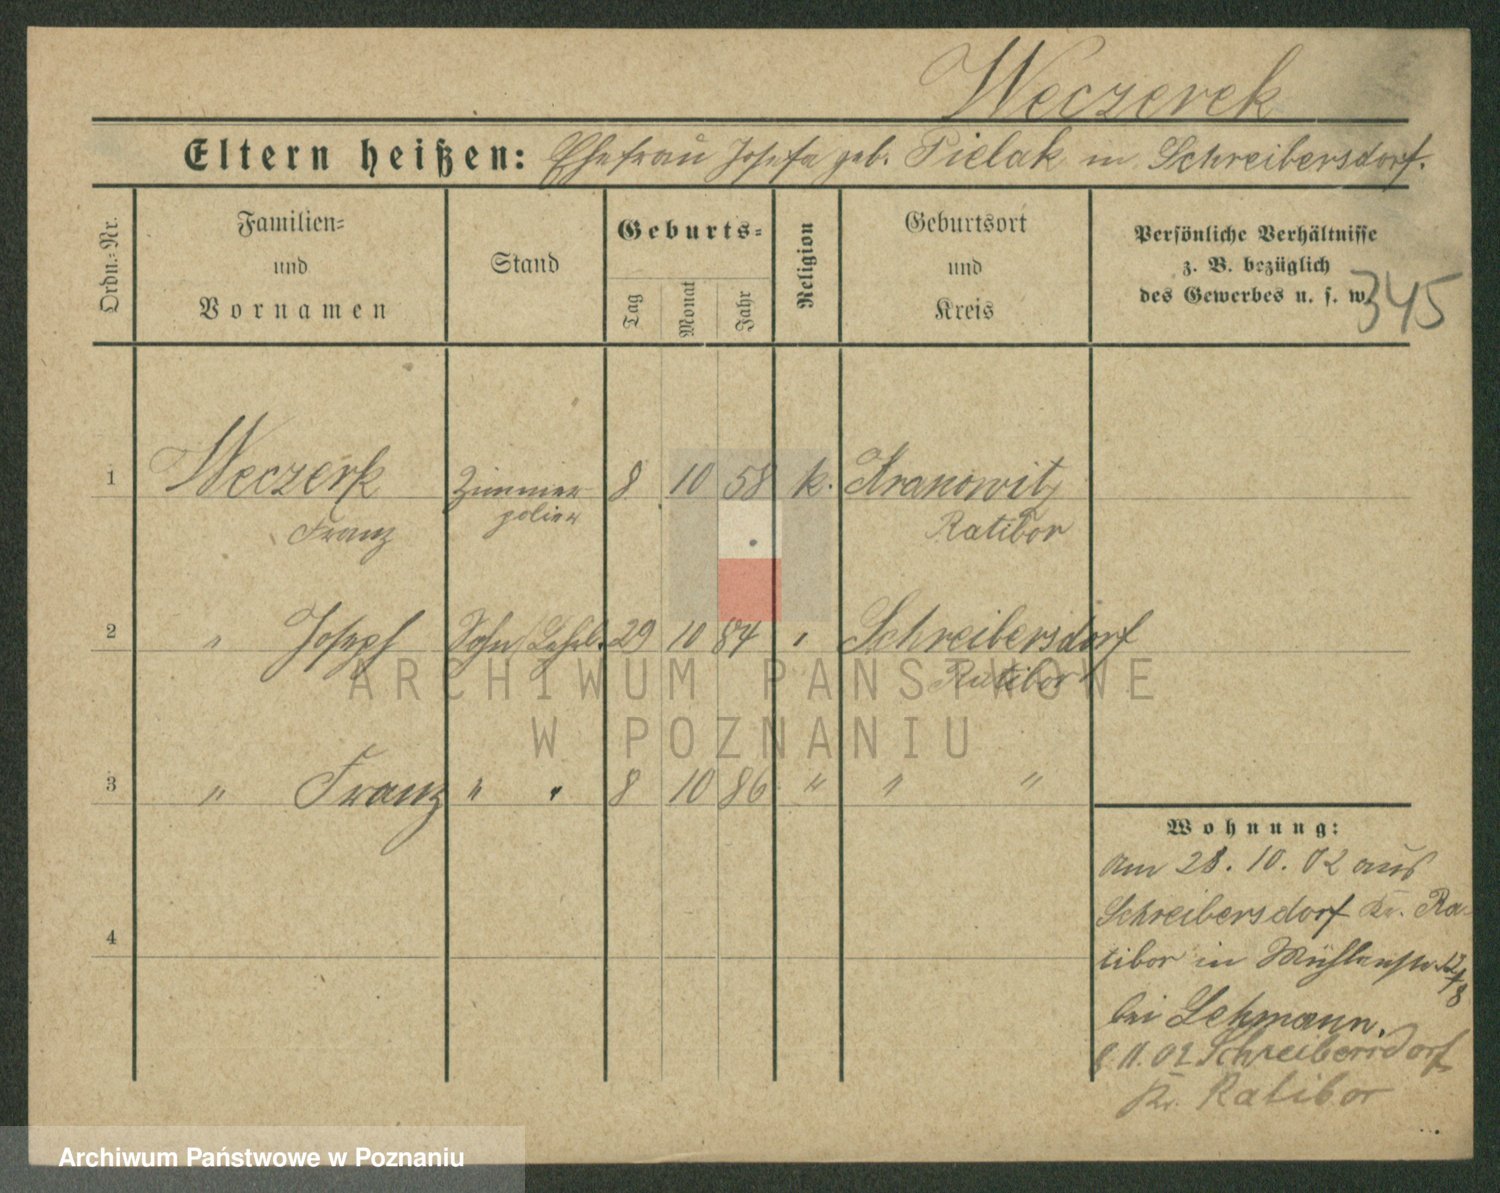 Weczerek
Eltern heißen: Ehefrau Josefa geb. Pielak in Schreibersdorf.
Ordn.-Nr.
Familien-
und
Vornamen
Stand
Geburts-
Tag
Monat
Jahr
Religion
Geburtsort
und
Kreis
Persönliche Verhältnisse
z. B. bezüglich
des Gewerbes u. s. w.
345
1 Weczerk Zimmer 8 10 58 k. Kranowitz
Franz polier Ratibor
2 " Joseph Sohn Lehrl. 29 10 84 " Schreibersdorf
Ratibor
3 " Franz " " 8 10 86 " " "
4
Wohnung:
Am 28. 10. 02 aus
Schreibersdorf Kr. Ra-
tibor in Mühlenstr.
bei Lehmann.
8.11.02 Schreibersdorf
Kr. Ratibor
ARCHIWUM PAŃSTWOWE
W POZNANIU
Archiwum Państwowe w Poznaniu